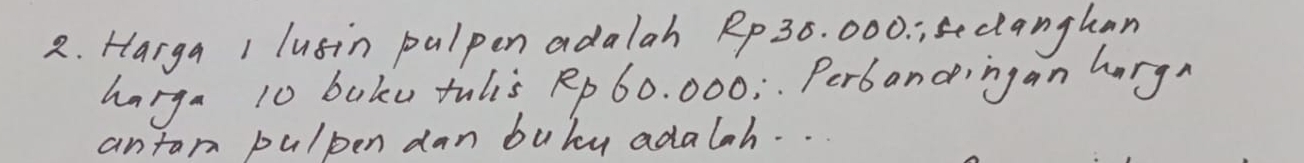 2. Harga 1 lusin pulpen adalah Rp30.000;, sedangkan
harga 10 buku tulis Rp60.000;. Perbandingan harga
antara pulpen dan buku adalah...